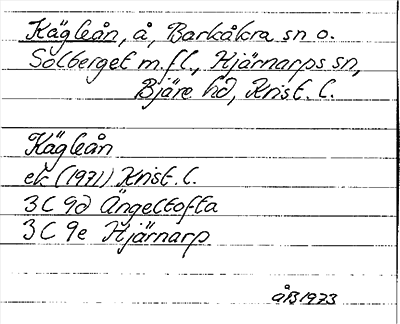 Kägleån, å, Barkåkra sn o.
Solberget m.fl., Hjärnarps sn,
Bjäre hd, Krist. l.
Kägleån
ek (1971) Krist. l.
3C 9d Ängeltofta
3C 9e Hjärnarp
åB1973